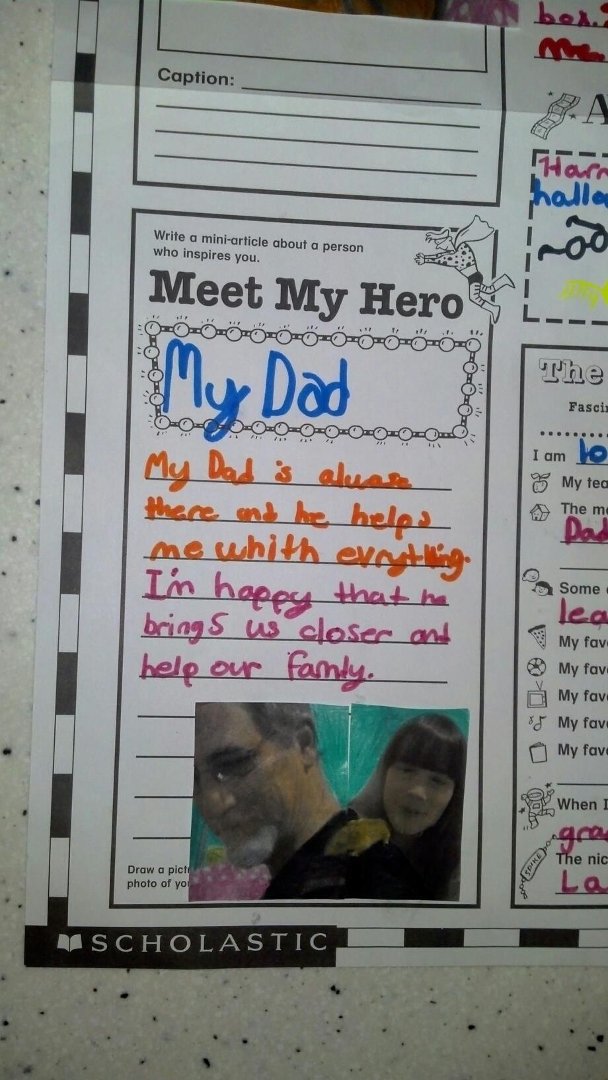 Caption:
Write a mini-article about a person
who inspires you.
Meet My Hero
My Dad
My Dad is alwase
there and he helps
me whith evrything.
I'm happy that he
brings us closer and
help our Family.
Draw a pict
photo of yo
SCHOLASTIC
bes.
me.
A
Harr
hallo
The
Fascin
I am lo
My tea
The m
Dad
Some
lea
My favo
My favo
My favo
My favo
My favo
When I
gra
SPIKE
The nic
La